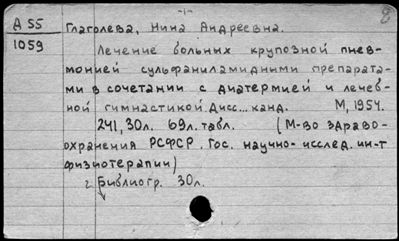 -1-
8
Д 55 Глаголева, Нина Андреевна.
1059
Лечение больных крупозной пнев-
монией сульфаниламидными препарата-
ми в сочетании с диатермией и лечеб-
ной гимнастикой. Дисс... канд. М, 1954.
241, 30л. 69л. табл. (М-во здраво-
охранения РСФСР. Гос. научно-исслед. ин-т
физиотерапии)
Библиогр. 30л.